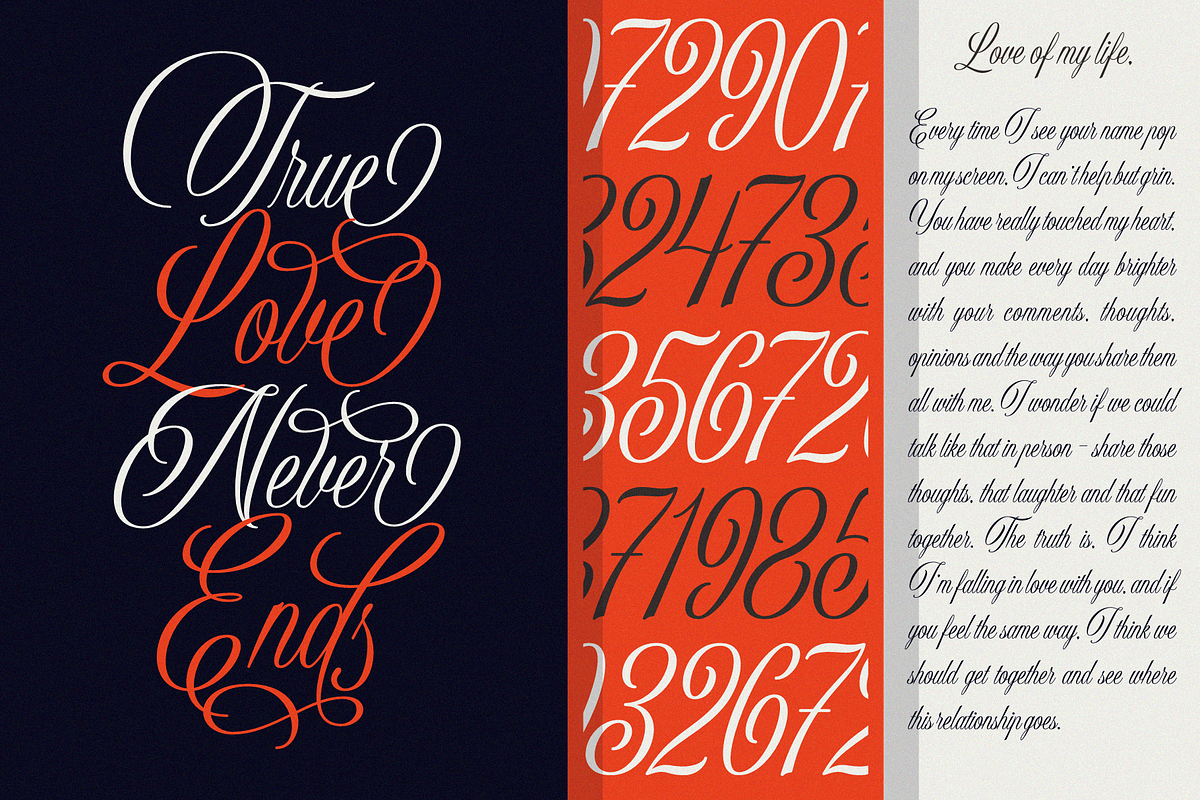 True
Love
Never
Ends
7290
2473
35672
71985
3267
Love of my life.
Every time I see your name pop
on my screen, I can't help but grin.
You have really touched my heart,
and you make every day brighter
with your comments, thoughts,
opinions and the way you share them
all with me. I wonder if we could
talk like that in person - share those
thoughts, that laughter and that fun
together. The truth is, I think
I'm falling in love with you, and if
you feel the same way, I think we
should get together and see where
this relationship goes.